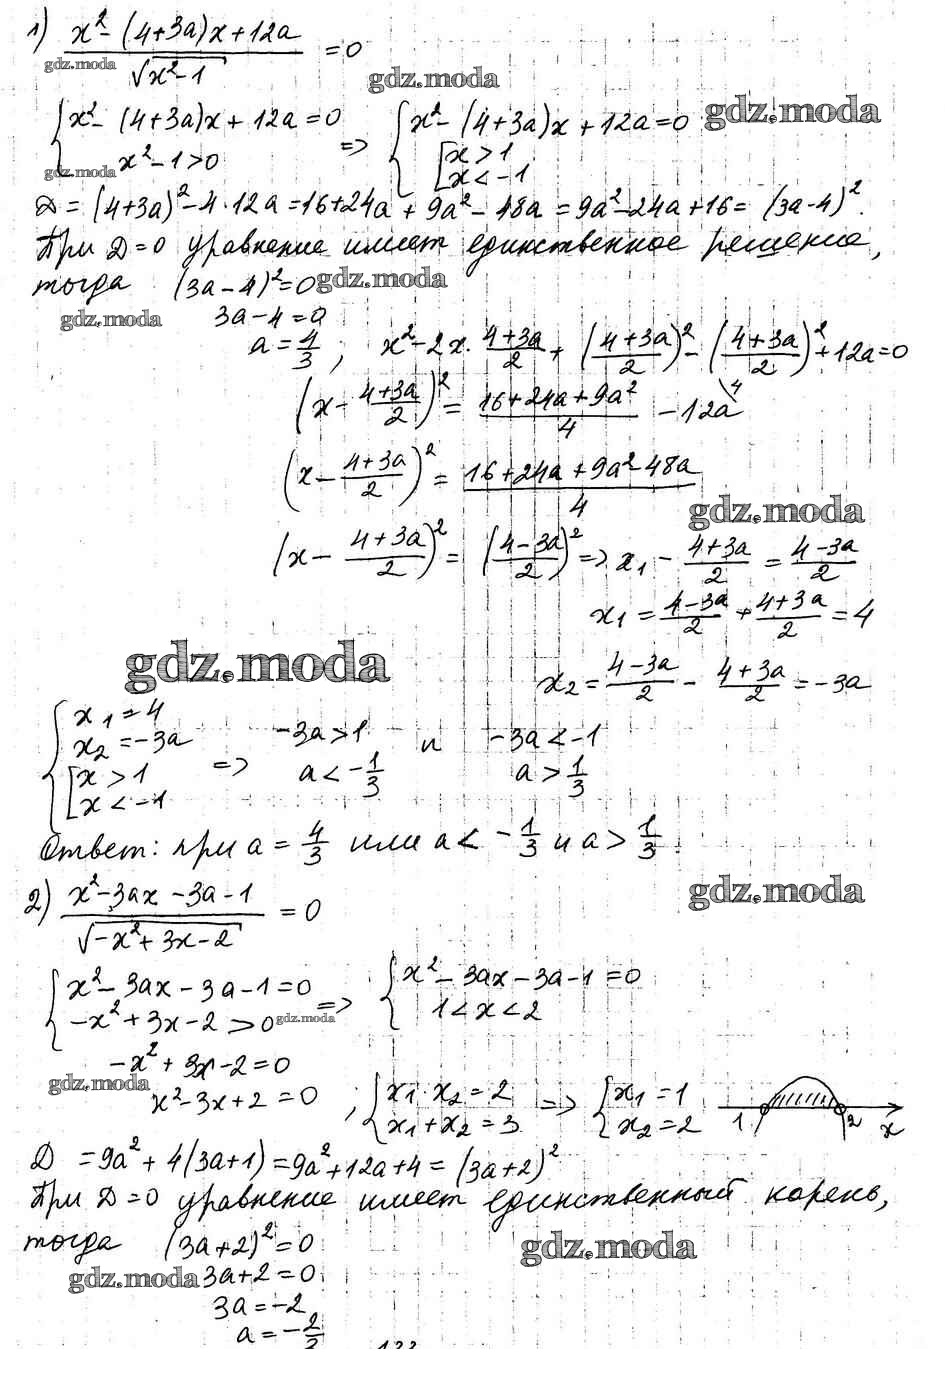 1) (x² - (4+3a)x + 12a) / √(x²-1) = 0
gdz.moda
gdz.moda
{ x² - (4+3a)x + 12a = 0 => { x² - (4+3a)x + 12a = 0
gdz.moda
x² - 1 > 0 [ x > 1
gdz.moda x < -1
D = (4+3a)² - 4·12a = 16+24a + 9a² - 48a = 9a² - 24a + 16 = (3a-4)².
При D=0 уравнение имеет единственное решение,
тогда (3a-4)² = 0 gdz.moda
gdz.moda 3a-4 = 0
a = 4/3 ; x² - 2x · (4+3a)/2 + ((4+3a)/2)² - ((4+3a)/2)² + 12a = 0
(x - (4+3a)/2)² = (16+24a+9a²)/4 - 12a \4
(x - (4+3a)/2)² = (16+24a+9a²-48a)/4
gdz.moda
(x - (4+3a)/2)² = ((4-3a)/2)² => x₁ - (4+3a)/2 = (4-3a)/2
x₁ = (4-3a)/2 + (4+3a)/2 = 4
gdz.moda
x₂ = (4-3a)/2 - (4+3a)/2 = -3a
{ x₁ = 4
x₂ = -3a => -3a > 1 и -3a < -1
[ x > 1 a < -1/3 a > 1/3
x < -1
Ответ: при a = 4/3 или a < -1/3 и a > 1/3.
gdz.moda
2) (x² - 3ax - 3a - 1) / √(-x²+3x-2) = 0
{ x² - 3ax - 3a - 1 = 0 => { x² - 3ax - 3a - 1 = 0
-x² + 3x - 2 > 0 gdz.moda 1 < x < 2
-x² + 3x - 2 = 0
gdz.moda
x² - 3x + 2 = 0 , { x₁ · x₂ = 2 => { x₁ = 1
x₁ + x₂ = 3 x₂ = 2
1 2 x
D = 9a² + 4(3a+1) = 9a² + 12a + 4 = (3a+2)²
При D=0 уравнение имеет единственный корень,
тогда (3a+2)² = 0
gdz.moda
gdz.moda 3a+2 = 0
3a = -2
a = -2/3